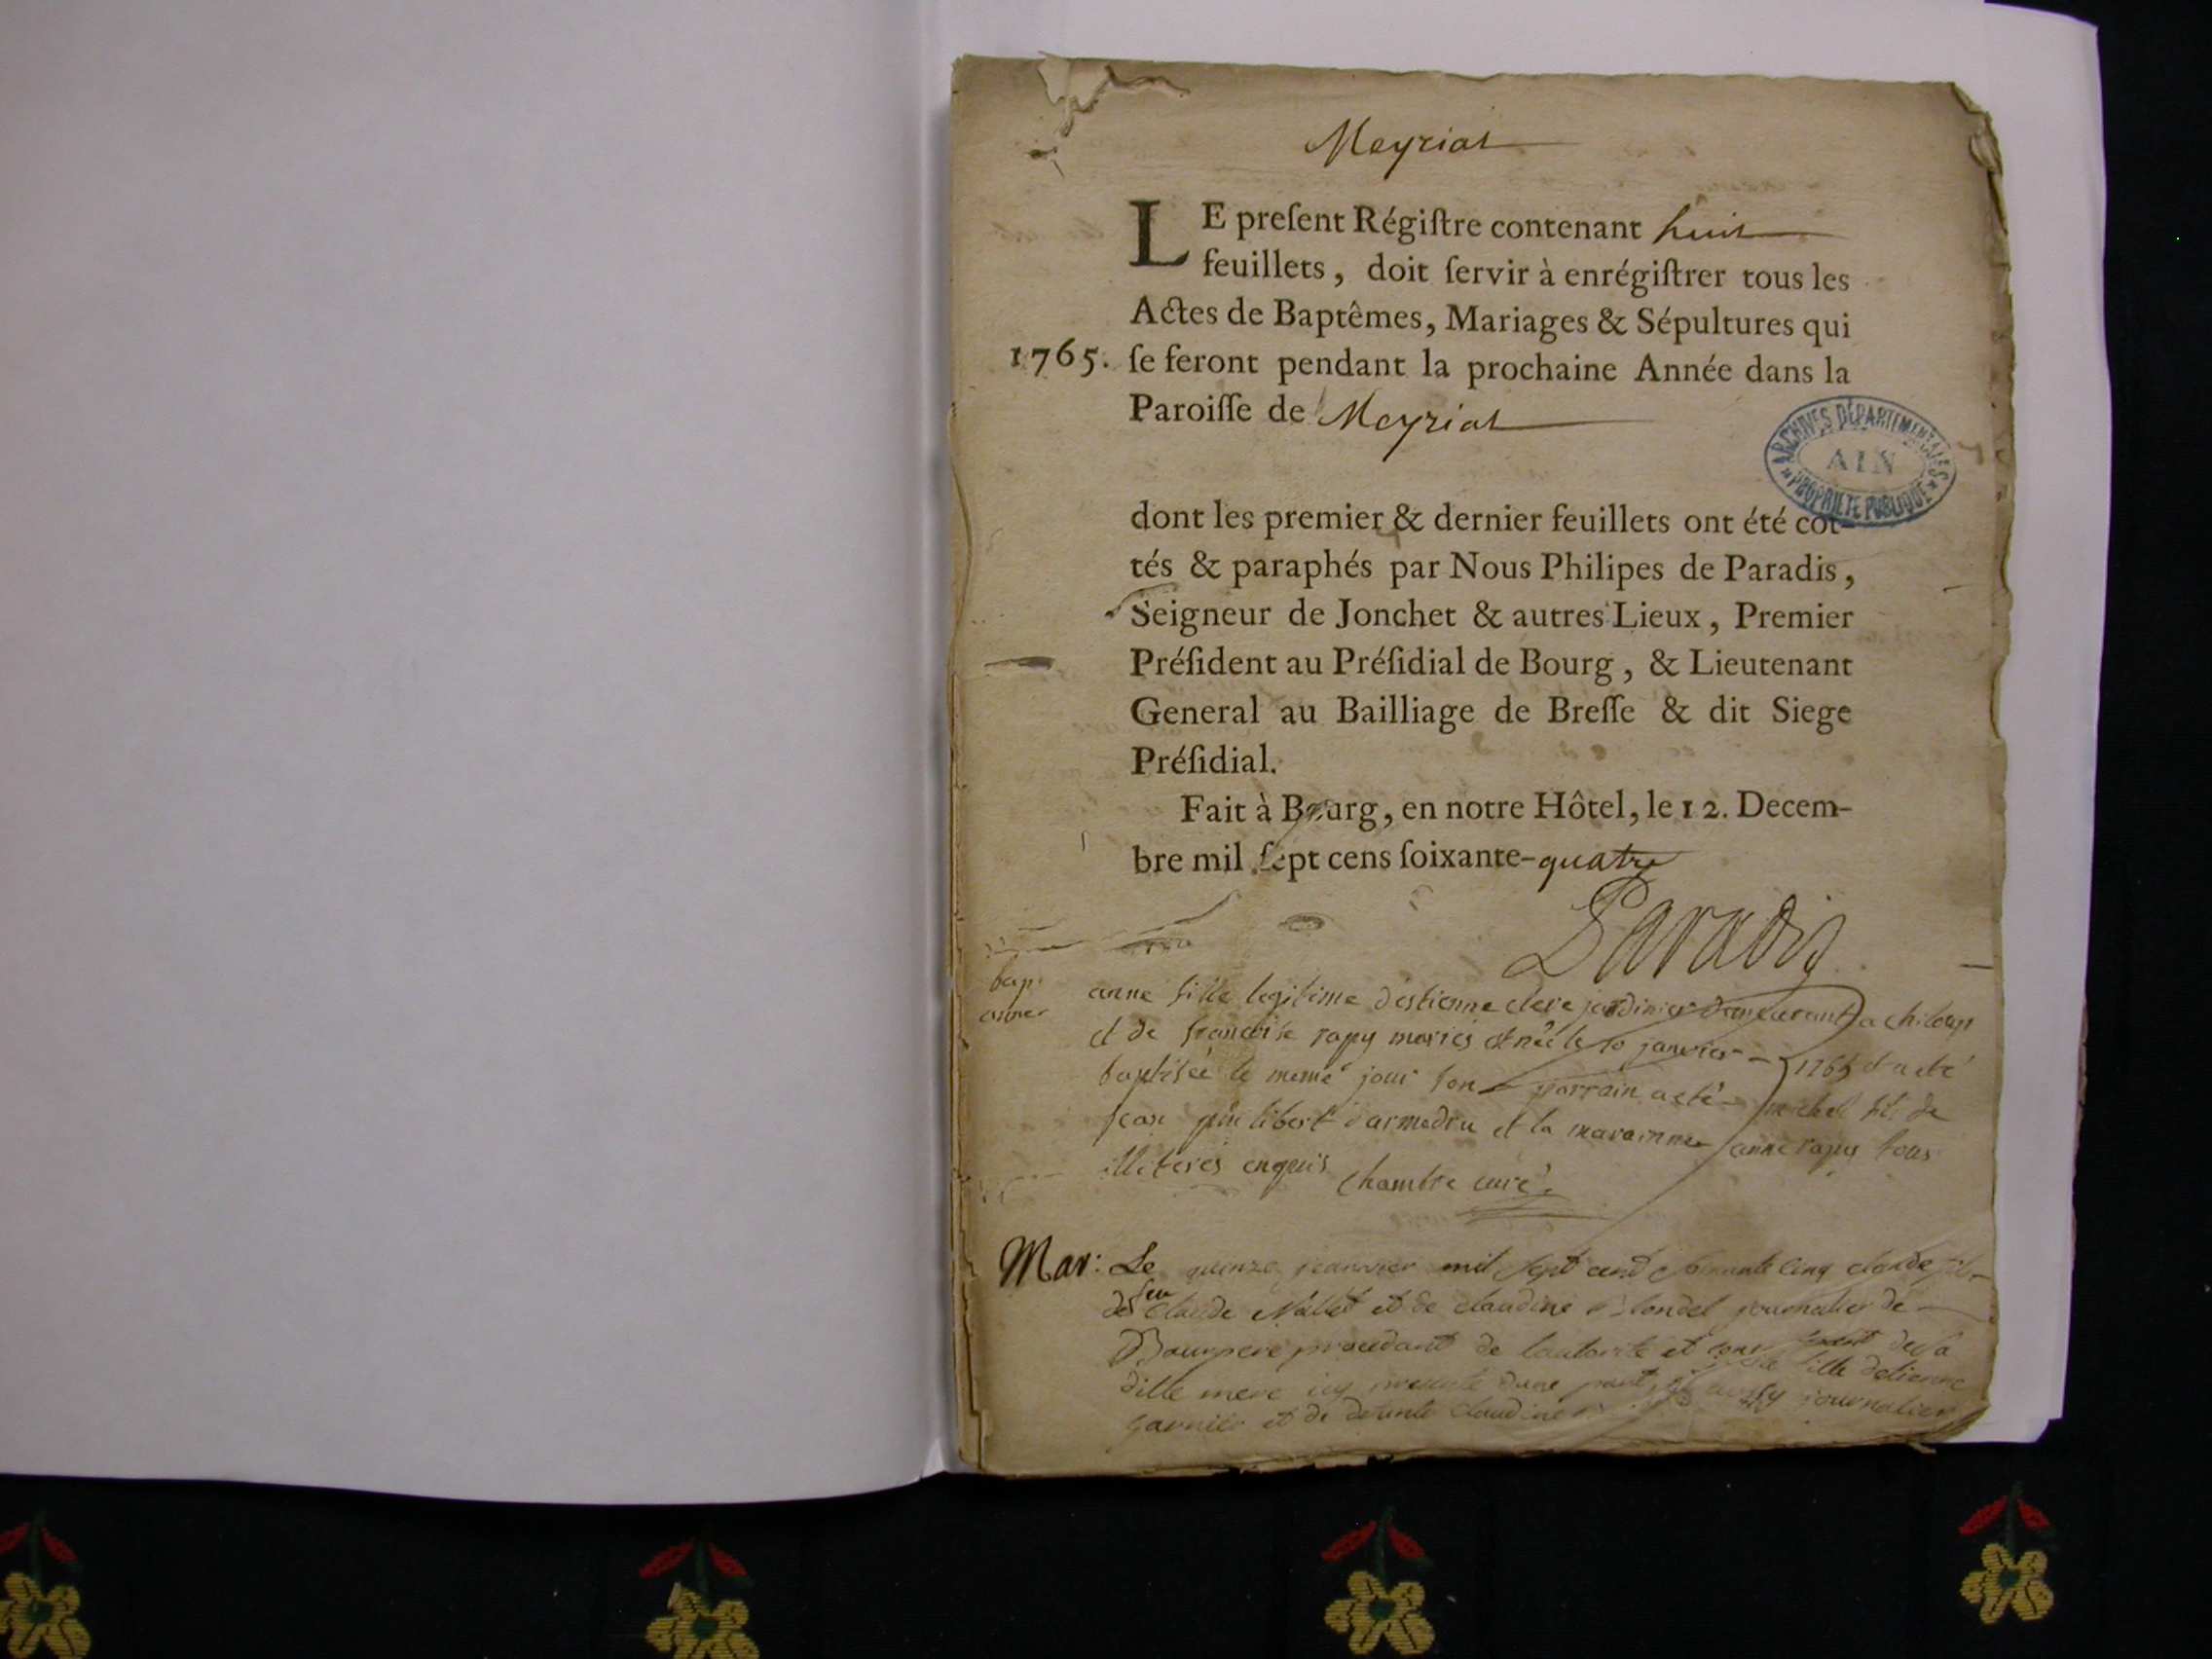 Meyriat
LE preſent Régiſtre contenant huit
feuillets, doit ſervir à enrégiſtrer tous les
Actes de Baptêmes, Mariages & Sépultures qui
1765. ſe feront pendant la prochaine Année dans la
Paroiſſe de Meyriat
ARCHIVES DÉPARTEMENTALES
AIN
PROPRIÉTÉ PUBLIQUE
dont les premier & dernier feuillets ont été cot-
tés & paraphés par Nous Philipes de Paradis,
Seigneur de Jonchet & autres Lieux, Premier
Préſident au Préſidial de Bourg, & Lieutenant
General au Bailliage de Breſſe & dit Siege
Préſidial.
Fait à Bourg, en notre Hôtel, le 12. Decem-
bre mil ſept cens ſoixante-quatre
Paradis
bap.
anne fille legitime d'estienne jardinier a
et de francoise rapy mariés est née le 10 janvier 1765 et a eté
baptisée le meme jour son parrain a eté michel fils de
jean et la maraine anne rapy tous
illiterés enquis chambre curé
Mar: Le quinze janvier mil sept cent soixante cinq claude fils
de feu claude et de claudine journalier de
procedant de lautorité et de sa
ditte mere icy presente dune part fille detienne
garnier et de defunte claudine journalier